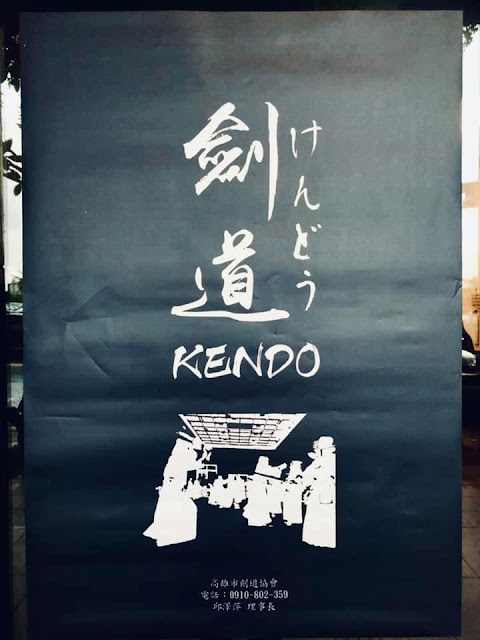 劍道
けんどう
KENDO
高雄市劍道協會
電話：0910-802-359
邱澤萍 理事長